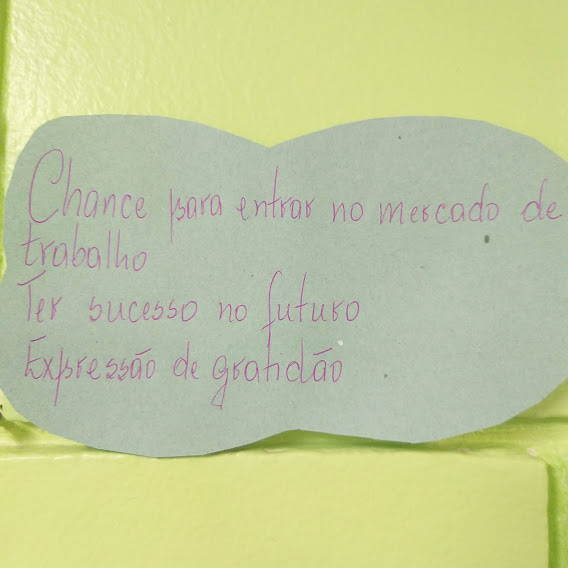 Chance para entrar no mercado de
trabalho
Ter sucesso no futuro
Expressão de gratidão